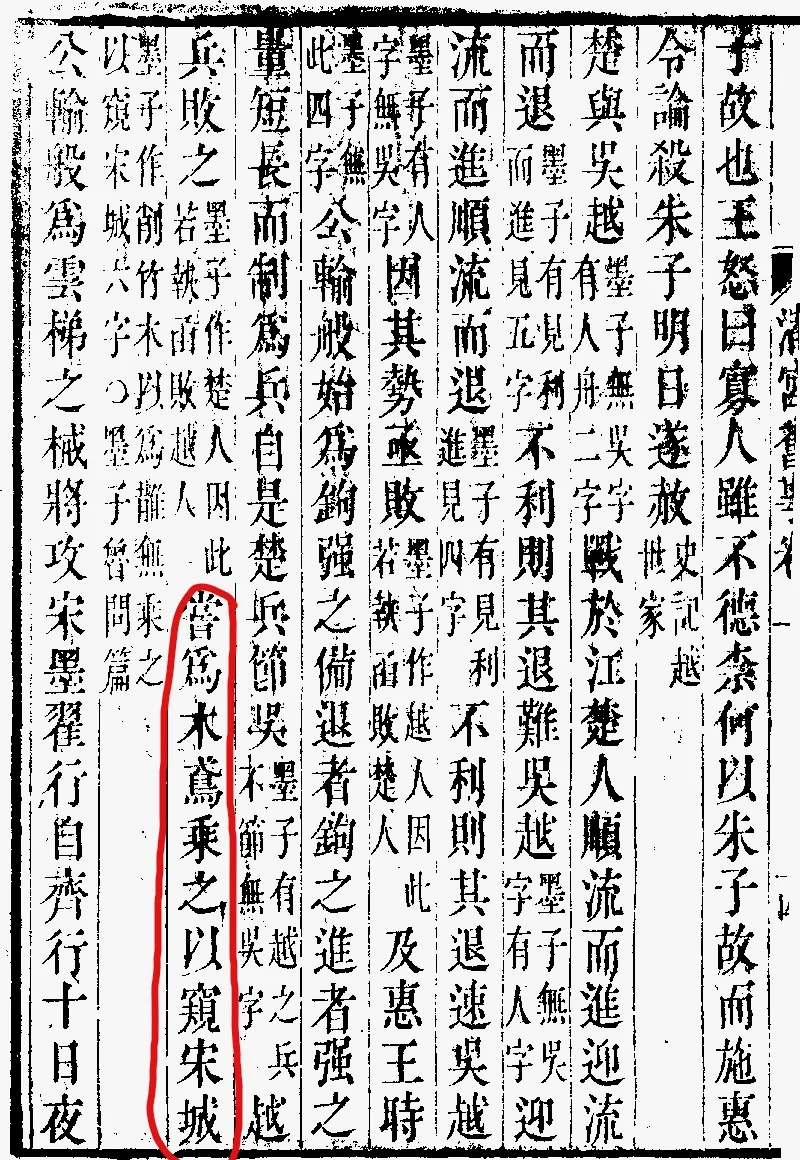 渚宮舊事卷一
子故也王怒曰寡人雖不德柰何以朱子故而施惠
令論殺朱子明日遂赦史記越世家
楚與吳越墨子無吳字有人舟二字戰於江楚人順流而進迎流
而退墨子有見利而進見五字不利則其退難吳越墨子無吳字有人字迎
流而進順流而退墨子有見利進見四字不利則其退速吳越
墨子有人字無吳字因其勢亟敗墨子作越人因此若執亟敗楚人及惠王時
墨子無此四字公輸般始爲鉤强之備退者鉤之進者强之
量短長而制爲兵自是楚兵節吳墨子有越之兵不節無吳字越
兵敗之墨子作楚人因此若執亟敗越人嘗爲木鳶乘之以窺宋城
墨子作削竹木以爲䧿無乘之以窺宋城六字○墨子曾問篇
公輸般爲雲梯之械將攻宋墨翟行自齊行十日夜